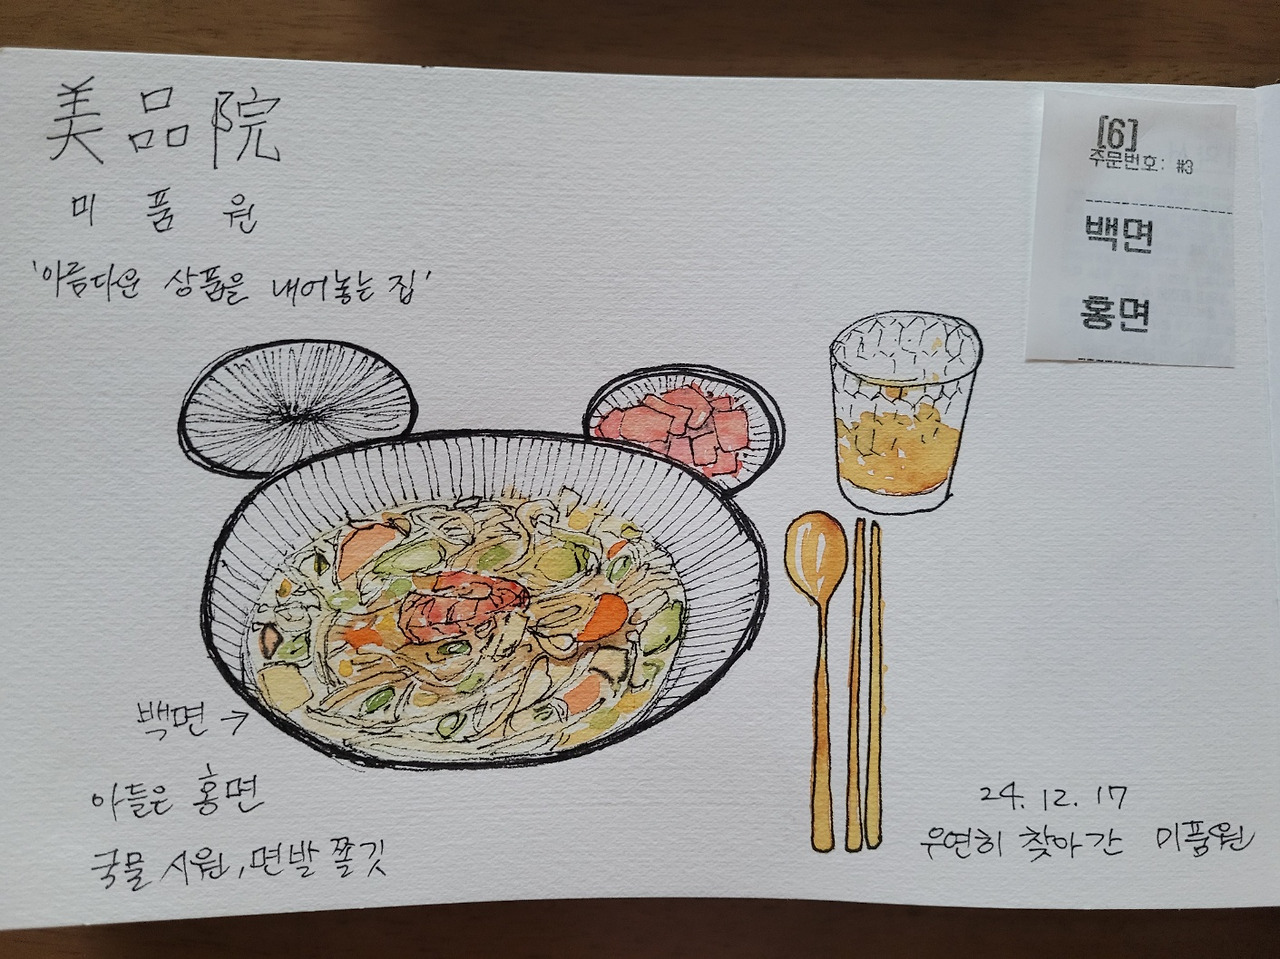 美品院
미품원
'아름다운 상품을 내어놓는 집'
[6]
주문번호: #3
백면
홍면
백면 →
아들은 홍면
국물 시원, 면발 쫄깃
24. 12. 17
우연히 찾아간 미품원